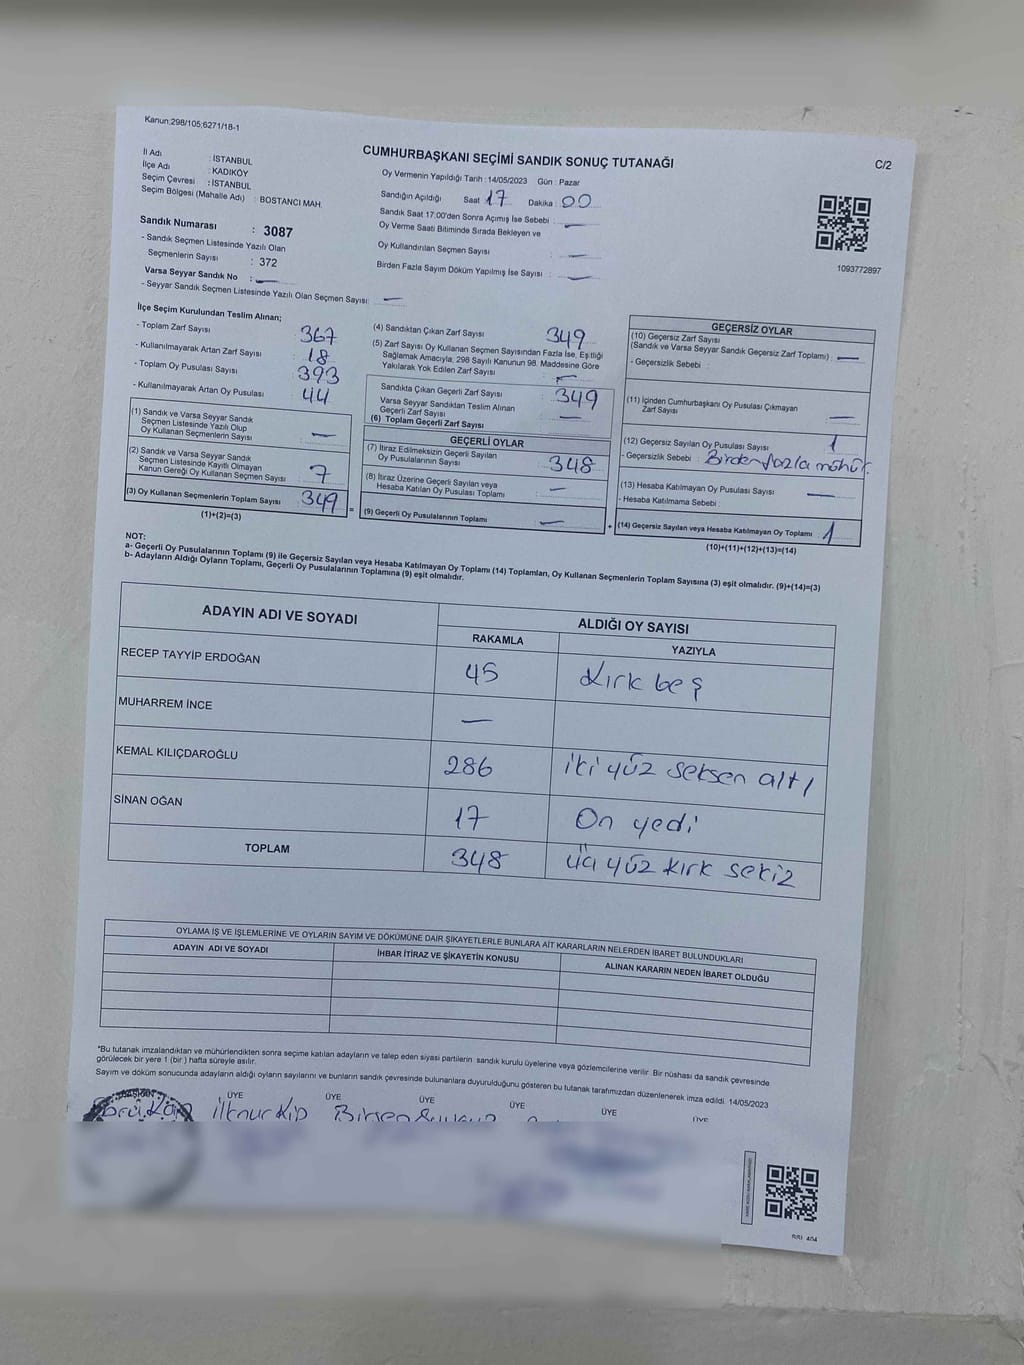 Kanun:298/105;6271/18-1
CUMHURBAŞKANI SEÇİMİ SANDIK SONUÇ TUTANAĞI
C/2
İl Adı : İSTANBUL
İlçe Adı : KADIKÖY
Seçim Çevresi : İSTANBUL
Seçim Bölgesi (Mahalle Adı) : BOSTANCI MAH.
Oy Vermenin Yapıldığı Tarih : 14/05/2023 Gün : Pazar
Sandığın Açıldığı Saat 17 Dakika : 00
Sandık Saat 17:00'den Sonra Açımış İse Sebebi : —
Oy Verme Saati Bitiminde Sırada Bekleyen ve
Oy Kullandırılan Seçmen Sayısı : —
Birden Fazla Sayım Döküm Yapılmış İse Sayısı : —
1093772897
Sandık Numarası : 3087
- Sandık Seçmen Listesinde Yazılı Olan
Seçmenlerin Sayısı : 372
Varsa Seyyar Sandık No : —
- Seyyar Sandık Seçmen Listesinde Yazılı Olan Seçmen Sayısı: —
İlçe Seçim Kurulundan Teslim Alınan;
- Toplam Zarf Sayısı : 367
- Kullanılmayarak Artan Zarf Sayısı : 18
- Toplam Oy Pusulası Sayısı : 393
- Kullanılmayarak Artan Oy Pusulası : 44
(1) Sandık ve Varsa Seyyar Sandık
Seçmen Listesinde Yazılı Olup
Oy Kullanan Seçmenlerin Sayısı : —
(2) Sandık ve Varsa Seyyar Sandık
Seçmen Listesinde Kayıtlı Olmayan
Kanun Gereği Oy Kullanan Seçmen Sayısı : 7
(3) Oy Kullanan Seçmenlerin Toplam Sayısı : 349 =
(1)+(2)=(3)
(4) Sandıktan Çıkan Zarf Sayısı : 349
(5) Zarf Sayısı Oy Kullanan Seçmen Sayısından Fazla İse, Eşitliği
Sağlamak Amacıyla, 298 Sayılı Kanunun 98. Maddesine Göre
Yakılarak Yok Edilen Zarf Sayısı : —
Sandıkta Çıkan Geçerli Zarf Sayısı : 349
Varsa Seyyar Sandıktan Teslim Alınan
Geçerli Zarf Sayısı : —
(6) Toplam Geçerli Zarf Sayısı
GEÇERLİ OYLAR
(7) İtiraz Edilmeksizin Geçerli Sayılan
Oy Pusulalarının Sayısı : 348
(8) İtiraz Üzerine Geçerli Sayılan veya
Hesaba Katılan Oy Pusulası Toplamı : —
(9) Geçerli Oy Pusulalarının Toplamı : — +
GEÇERSİZ OYLAR
(10) Geçersiz Zarf Sayısı
(Sandık ve Varsa Seyyar Sandık Geçersiz Zarf Toplamı) : —
- Geçersizlik Sebebi :
(11) İçinden Cumhurbaşkanı Oy Pusulası Çıkmayan
Zarf Sayısı : —
(12) Geçersiz Sayılan Oy Pusulası Sayısı : 1
- Geçersizlik Sebebi : Birden fazla mühür
(13) Hesaba Katılmayan Oy Pusulası Sayısı : —
- Hesaba Katılmama Sebebi :
(14) Geçersiz Sayılan veya Hesaba Katılmayan Oy Toplamı : 1
(10)+(11)+(12)+(13)=(14)
NOT:
a- Geçerli Oy Pusulalarının Toplamı (9) ile Geçersiz Sayılan veya Hesaba Katılmayan Oy Toplamı (14) Toplamları, Oy Kullanan Seçmenlerin Toplam Sayısına (3) eşit olmalıdır. (9)+(14)=(3)
b- Adayların Aldığı Oyların Toplamı, Geçerli Oy Pusulalarının Toplamına (9) eşit olmalıdır.
ADAYIN ADI VE SOYADI ALDIĞI OY SAYISI
RAKAMLA YAZIYLA
RECEP TAYYİP ERDOĞAN 45 Kırk beş
MUHARREM İNCE —
KEMAL KILIÇDAROĞLU 286 iki yüz seksen altı
SİNAN OĞAN 17 On yedi
TOPLAM 348 üç yüz kırk sekiz
OYLAMA İŞ VE İŞLEMLERİNE VE OYLARIN SAYIM VE DÖKÜMÜNE DAİR ŞİKAYETLERLE BUNLARA AİT KARARLARIN NELERDEN İBARET BULUNDUKLARI
ADAYIN ADI VE SOYADI İHBAR İTİRAZ VE ŞİKAYETİN KONUSU ALINAN KARARIN NEDEN İBARET OLDUĞU
*Bu tutanak imzalandıktan ve mühürlendikten sonra seçime katılan adayların ve talep eden siyasi partilerin sandık kurulu üyelerine veya gözlemcilerine verilir. Bir nüshası da sandık çevresinde
görülecek bir yere 1 (bir ) hafta süreyle asılır.
Sayım ve döküm sonucunda adayların aldığı oyların sayılarını ve bunların sandık çevresinde bulunanlara duyurulduğunu gösteren bu tutanak tarafımızdan düzenlenerek imza edildi. 14/05/2023
BAŞKAN ÜYE ÜYE ÜYE ÜYE ÜYE ÜYE
ilknur Kıp Birsen